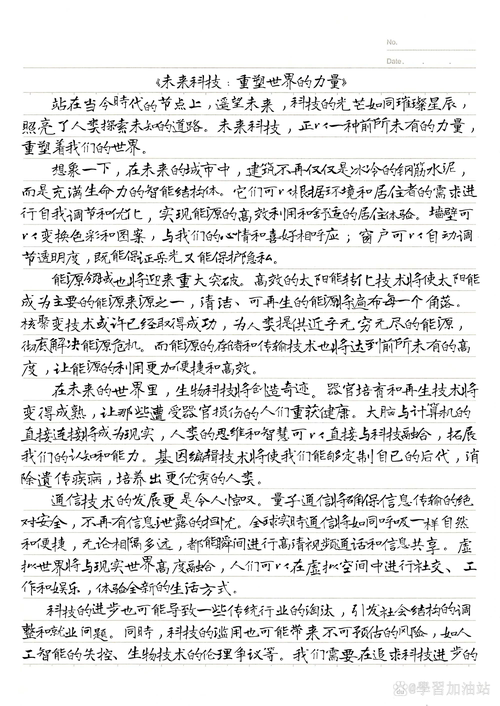 No.
Date. . .
《未来科技：重塑世界的力量》
站在当今时代的节点上，遥望未来，科技的光芒如同璀璨星辰，
照亮了人类探索未知的道路。未来科技，正以一种前所未有的力量，
重塑着我们的世界。
想象一下，在未来的城市中，建筑不再仅仅是冰冷的钢筋水泥，
而是充满生命力的智能结构体。它们可以根据环境和居住者的需求进
行自我调节和优化，实现能源的高效利用和舒适的居住体验。墙壁可
以变换色彩和图案，与我们的心情和喜好相呼应；窗户可以自动调
节透明度，既能保证采光又能保护隐私。
能源领域也将迎来重大突破。高效的太阳能转化技术将使太阳能
成为主要的能源来源之一，清洁、可再生的能源将遍布每一个角落。
核聚变技术或许已经取得成功，为人类提供近乎无穷无尽的能源，
彻底解决能源危机。而能源的存储和传输技术也将达到前所未有的高
度，让能源的利用更加便捷和高效。
在未来的世界里，生物科技将创造奇迹。器官培育和再生技术将
变得成熟，让那些遭受器官损伤的人们重获健康。大脑与计算机的
直接连接将成为现实，人类的思维和智慧可以直接与科技融合，拓展
我们的认知和能力。基因编辑技术将使我们能够定制自己的后代，消
除遗传疾病，培养出更优秀的人类。
通信技术的发展更是令人惊叹。量子通信将确保信息传输的绝
对安全，不再有信息泄露的担忧。全球实时通信将如同呼吸一样自然
和便捷，无论相隔多远，都能瞬间进行高清视频通话和信息共享。虚
拟世界将与现实世界高度融合，人们可以在虚拟空间中进行社交、工
作和娱乐，体验全新的生活方式。
科技的进步也可能导致一些传统行业的淘汰，引发社会结构的调
整和就业问题。同时，科技的滥用也可能带来不可预估的风险，如人
工智能的失控、生物技术的伦理争议等。我们需要在追求科技进步的
@學習加油站